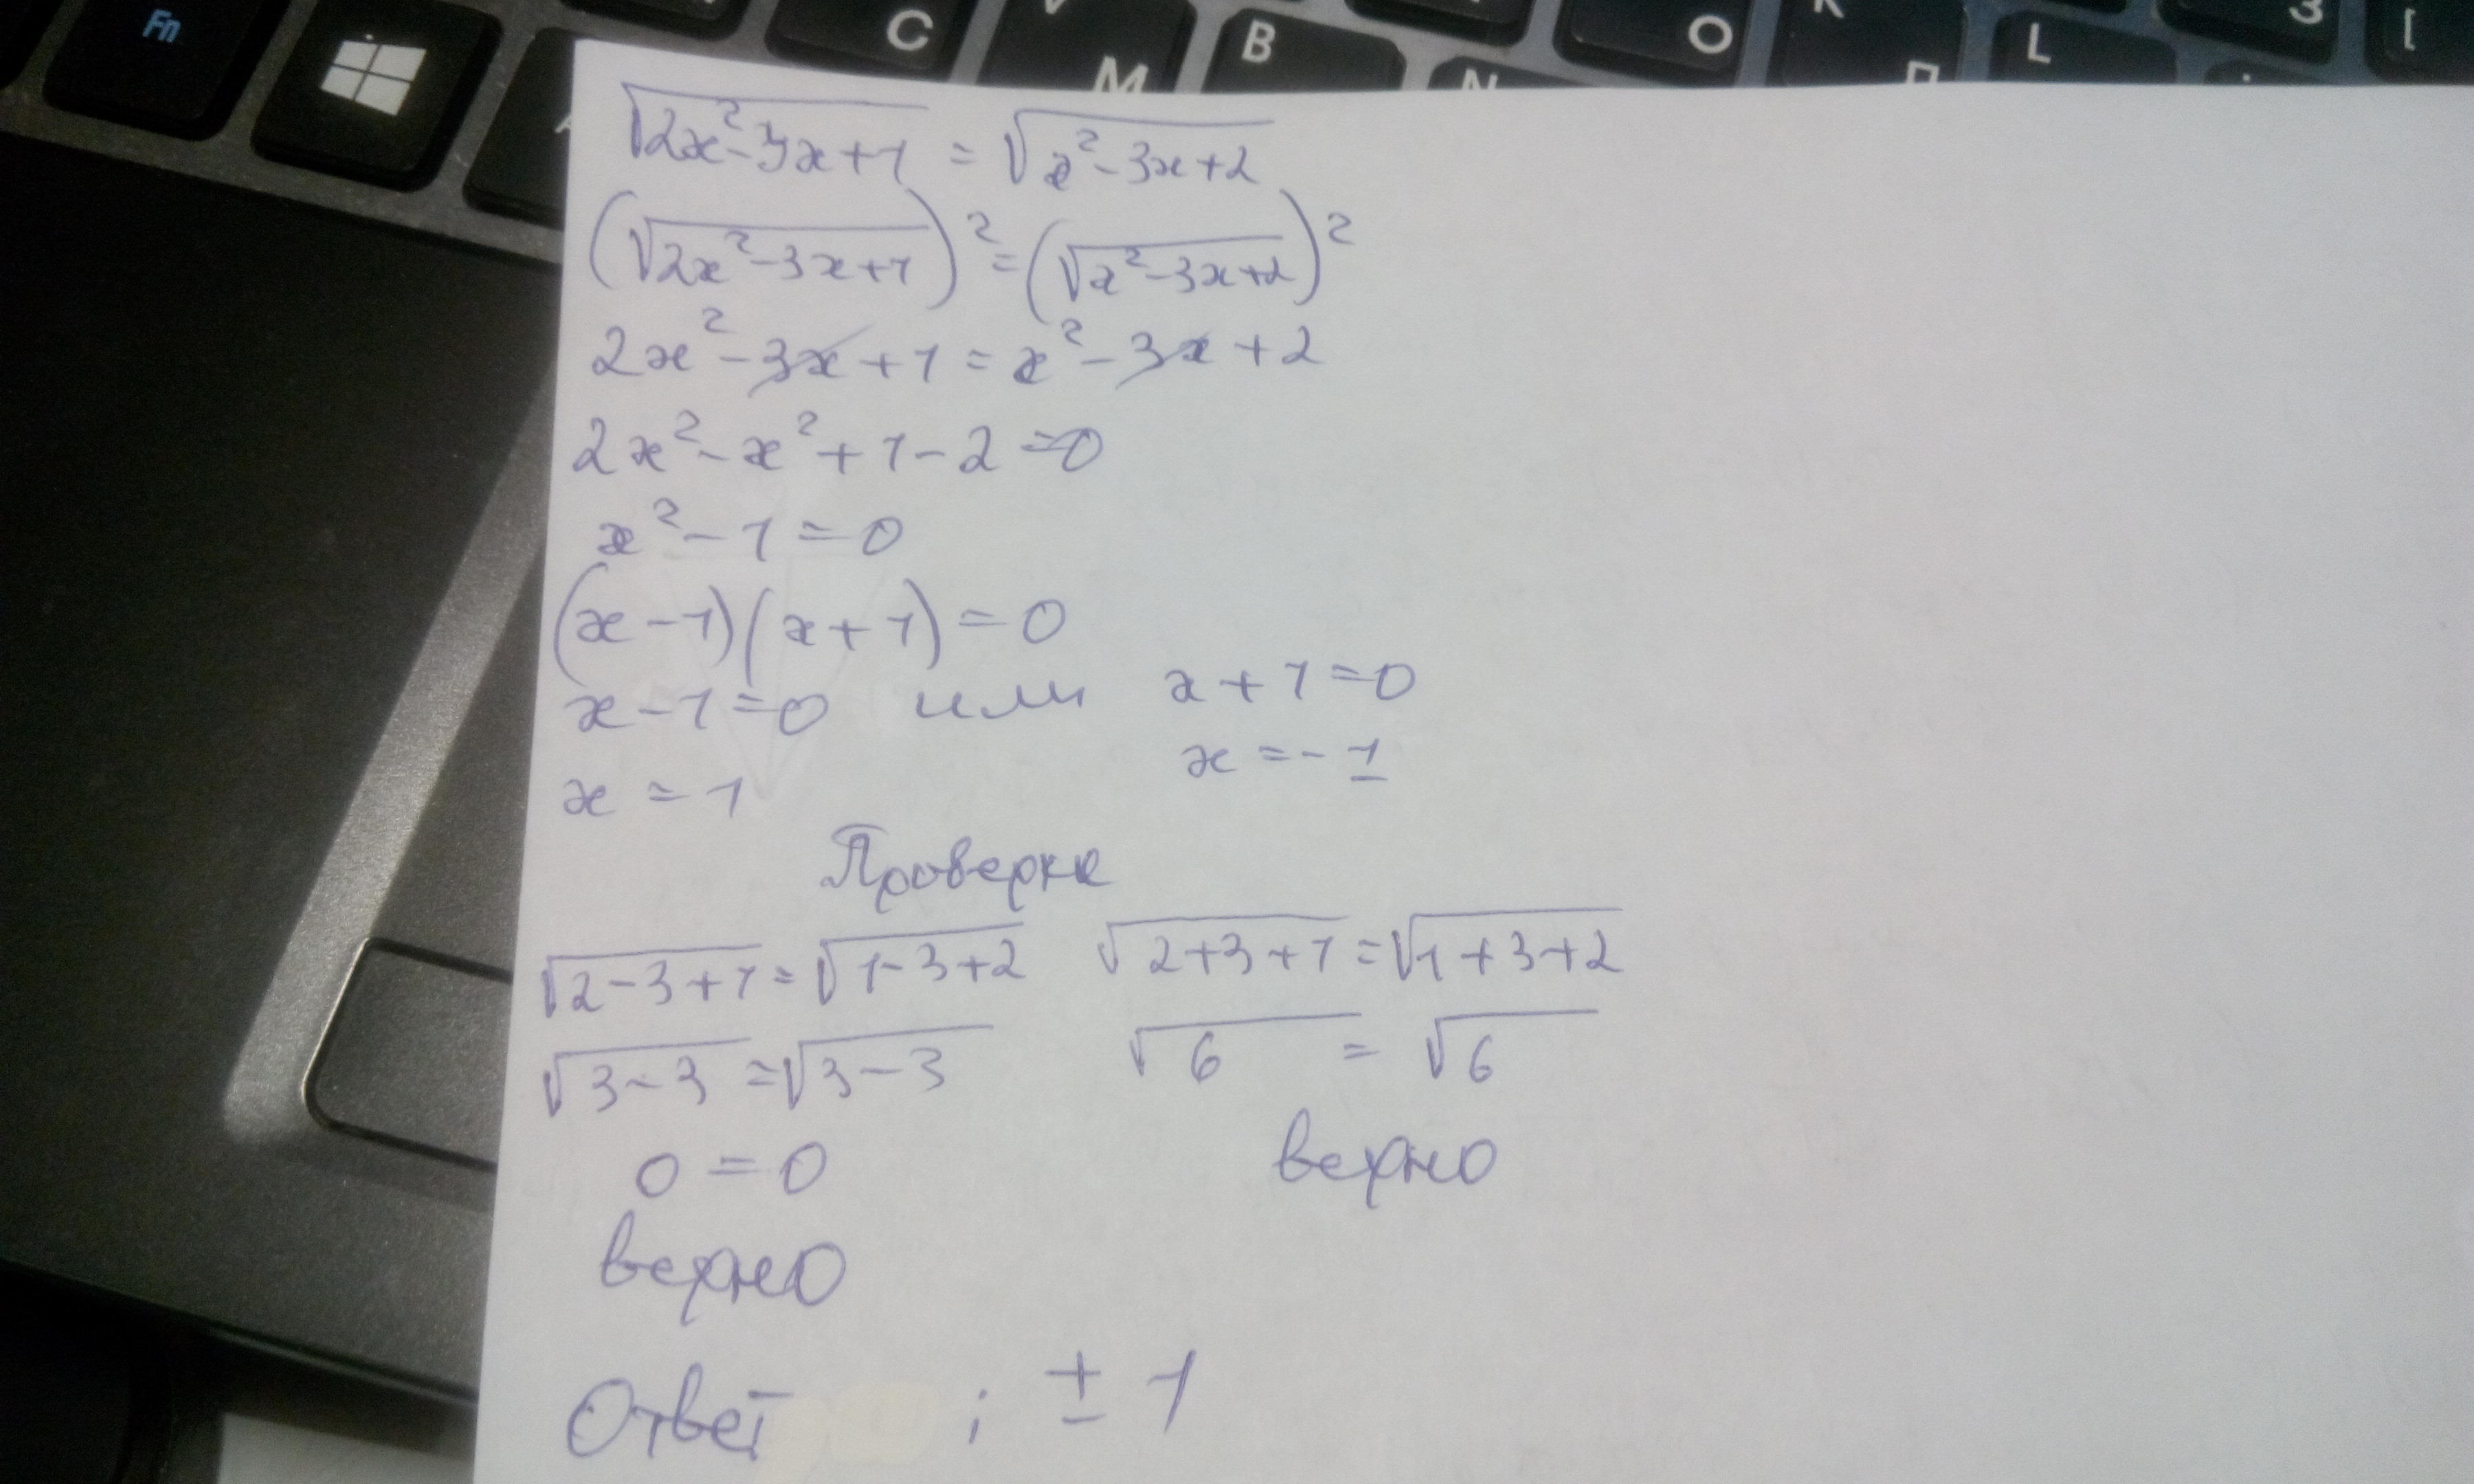 Fn C V M B N O K П L З [
√(2x²-3x+1) = √(x²-3x+2)
(√(2x²-3x+1))² = (√(x²-3x+2))²
2x²-3x+1 = x²-3x+2
2x²-x²+1-2=0
x²-1=0
(x-1)(x+1)=0
x-1=0 или x+1=0
x=1 x=-1
Проверка
√(2-3+1)=√(1-3+2) √(2+3+1)=√(1+3+2)
√(3-3)=√(3-3) √6 = √6
0=0 верно
верно
Ответ ; ±1